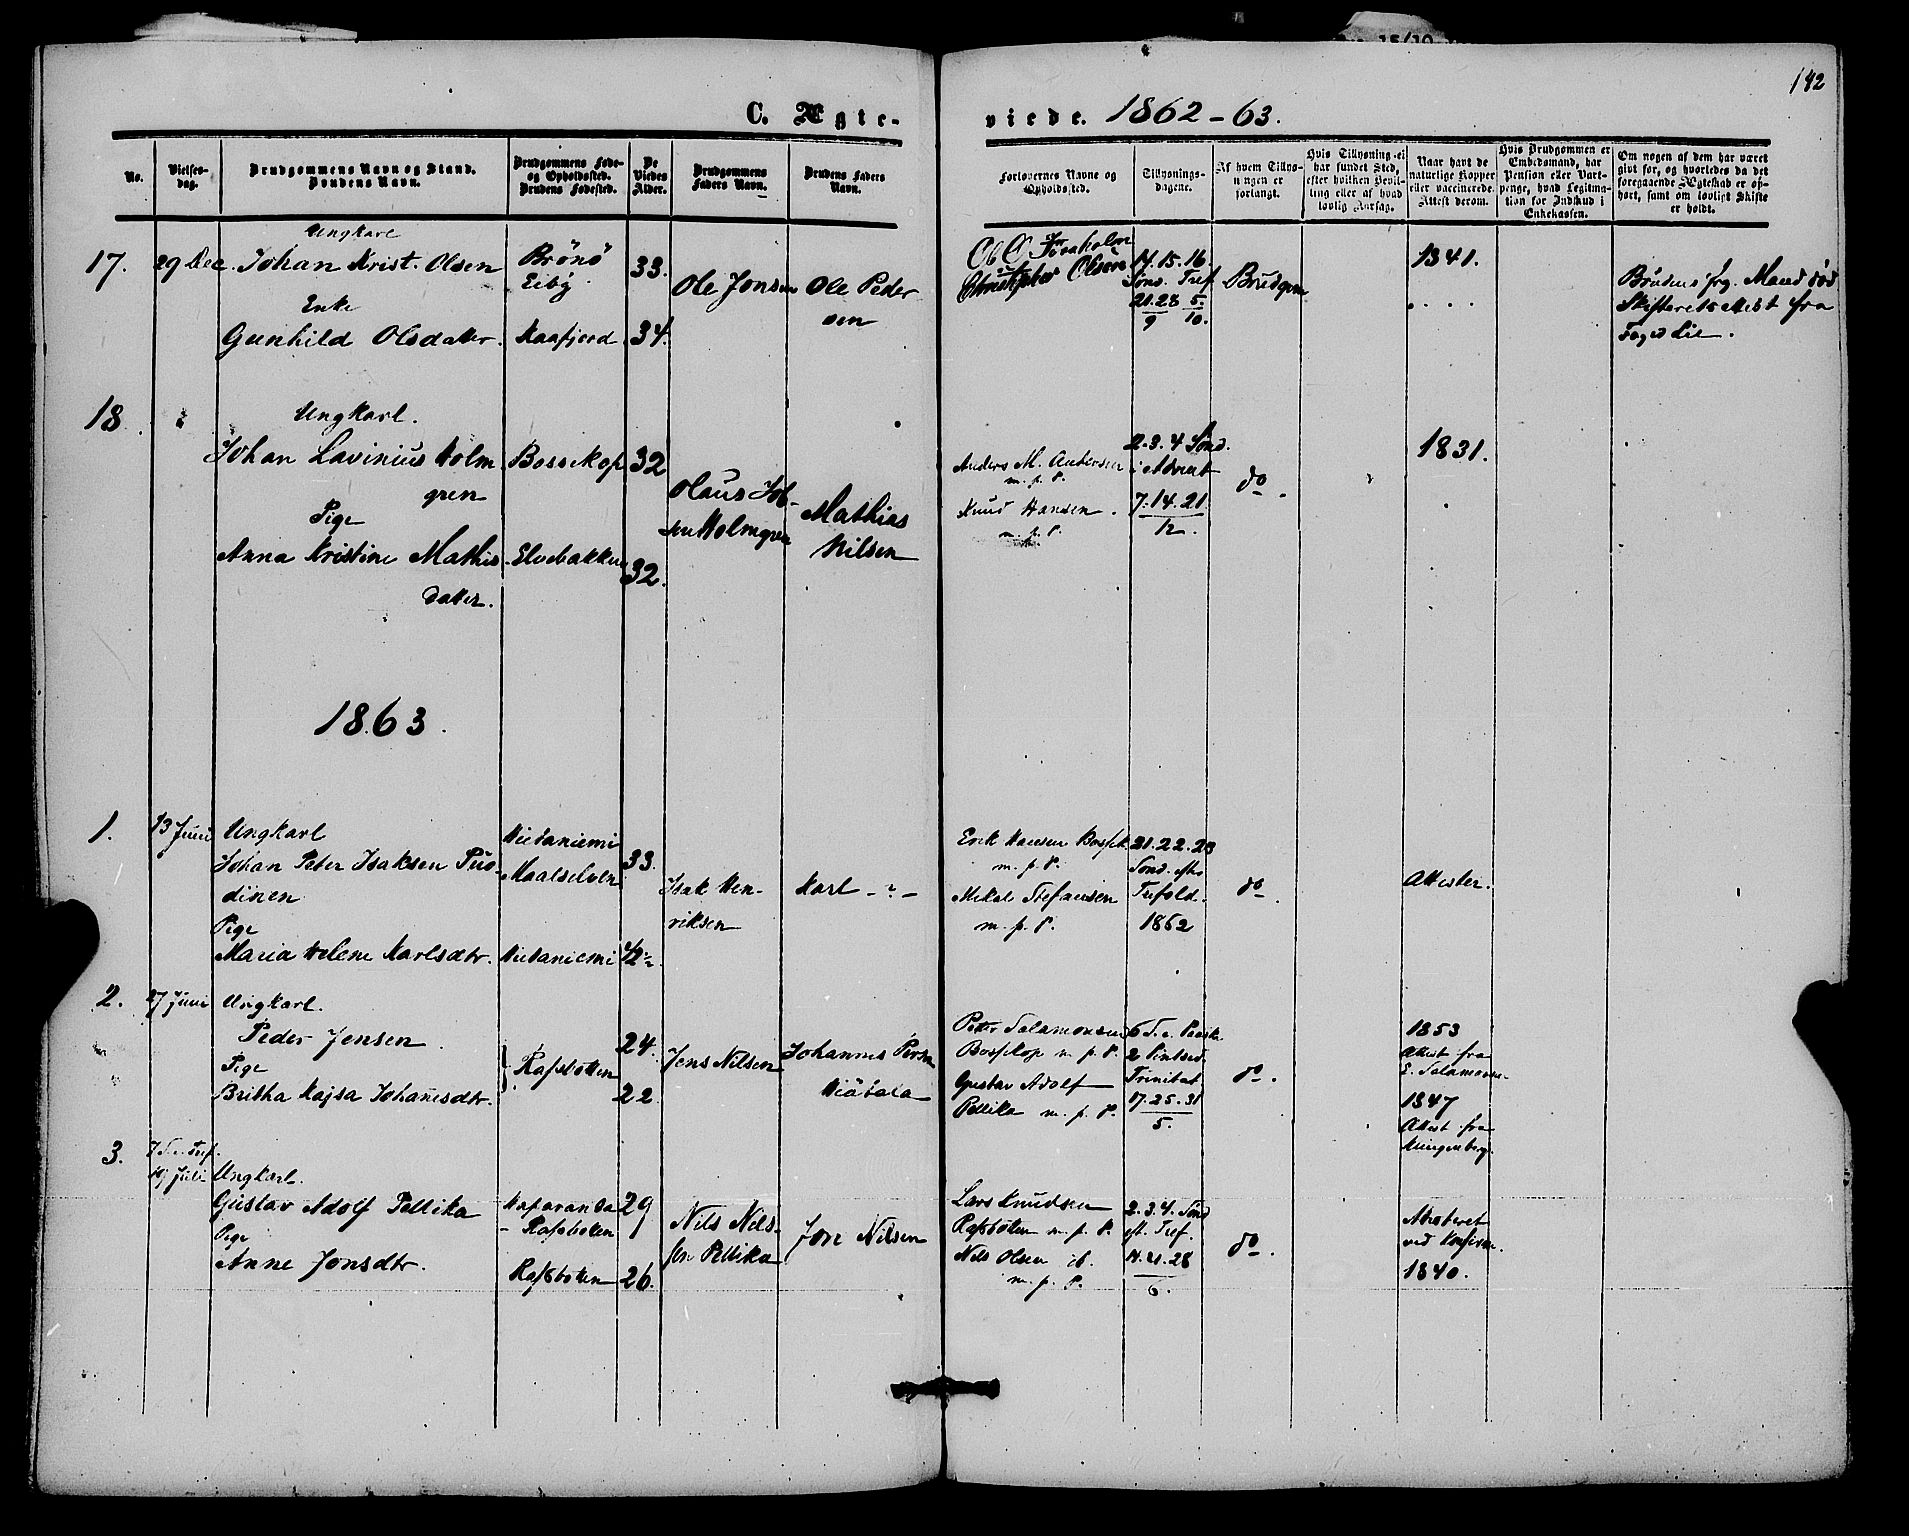 142
C. Ægte-
viede. 1862-63.
No.
Vielses-
dag.
Brudgommens Navn og Stand.
Brudens Navn.
Brudgommens Føde-
og Opholdssted.
Brudens Fødested.
De
Viedes
Alder.
Brudgommens
Faders Navn.
Brudens Faders
Navn.
Forlovernes Navne og
Opholdssted.
Tillysnings-
dagene.
Af hvem Tillys-
ningen er
forlangt.
Hvis Tillysning ei
har fundet Sted,
efter hvilken Bevil-
ling eller af hvad
lovlig Aarsag.
Naar havt de
naturlige Kopper
eller vaccinerede.
Attest derom.
Hvis Brudgommen er
Embedsmand, har
Pension eller Vart-
penge, hvad Legitima-
tion for Indskud i
Enkekassen.
Om nogen af dem har været
givt før, og hvorledes da det
foregaaende Ægteskab er op-
hørt, samt om lovligt Skifte
er holdt.
17.
29 Dec.
Ungkarl
Johan Krist. Olsen
Enke
Gunhild Olsdatter.
Brönö
Eiby.
Kaafjord
33.
34.
Ole Jonsen
Ole Peder
sen
Christopher Olsen
14. 15. 16.
Sönd. Tref.
21. 28 5.
9 10.
Brudgom
1841.
. . . .
Brudens frg. Mand död
Skifteretsattest fra
Foged Lie.
18
Ungkarl.
Johan Lavinius Holm
gren
Pige
Anna Kristine Mathis
datter.
Bossekop
Elvebakken
32
32.
Olaus Joh-
sen Holmgren
Mathias
Nilsen
Anders M. Andersen
m. p. P.
Knud Hansen.
m. p. P.
2. 3. 4 Sönd.
i Advent
7. 14. 21.
12.
do.
1831.
1863.
1.
13 Juni
Ungkarl
Johan Peter Isaksen Puo-
dinen
Pige
Maria Helene Karlsdtr.
Hietaniemi
Maalselven
Hietaniemi
33.
42
Isak Hen-
riksen
Karl -?-
Erik Hansen Bossek.
m. p. P.
Mikal Stefansen
m. p. P.
21. 22. 23
Sönd. eft.
Trefold.
1862
do.
Attester.
2.
27 Juni
Ungkarl.
Peder Jensen
Pige
Britha Kajsa Johannesdtr.
Rafsbotten
24.
22
Jens Nilsen
Johannes Persn
Niötala
Peter Salamonsen
Bossekop m. p. P.
Gustav Adolf
Pellika m. p. P.
6 S. e. Paaske
2 Pintsed.
Trinitat
17. 25. 31
5.
do.
1853
Attest fra
E. Salamonsen
1847
Attest fra
Klingenberg.
3.
7 S. e. Tref.
19 Juli
Ungkarl.
Gustav Adolf Pellika
Pige
Anne Jonsdtr.
Haparanda
- Rafsbotten
Rafsbotten
29
26.
Nils Nils-
sen Pellika
Jon Nilsen
Lars Knudsen
Rafsbotten m. p. P.
Nils Olsen ib.
m. p. P.
2. 3. 4. Sönd
eft. Tref.
14. 21. 28
6.
do.
Attesteret
ved Konfirm.
1840.